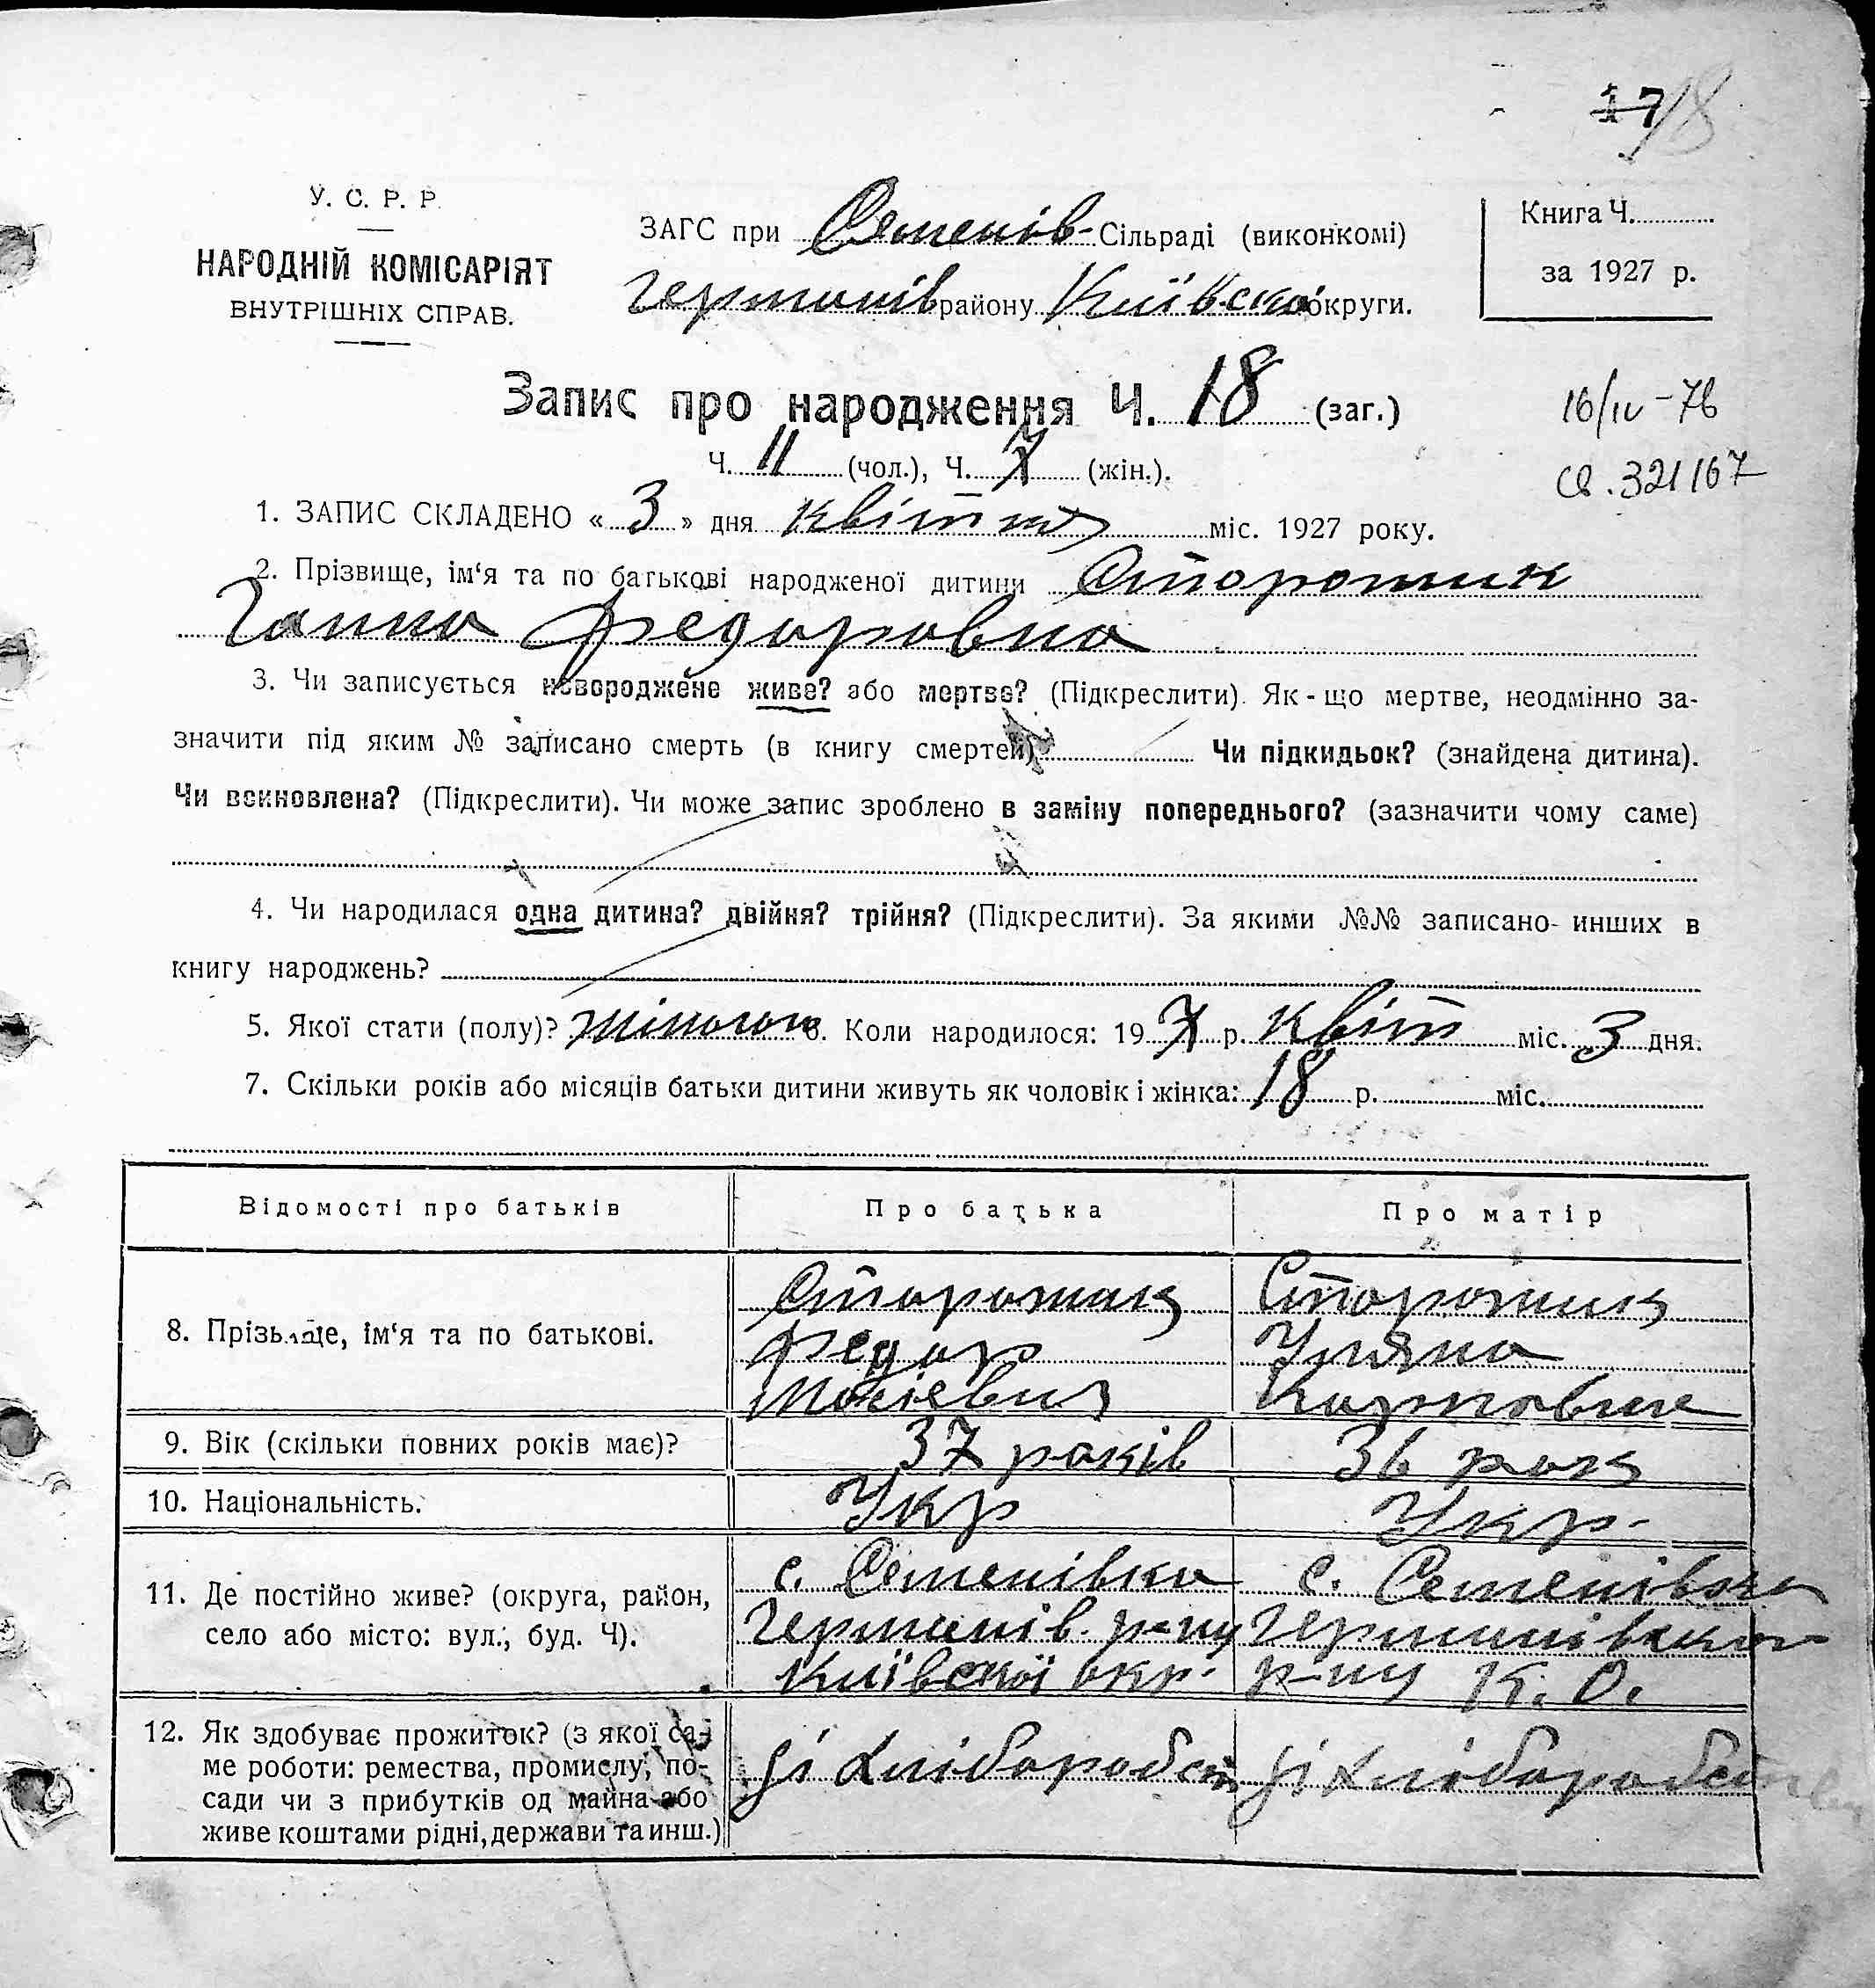 17 18
У. С. Р. Р.
НАРОДНІЙ КОМІСАРІЯТ
ВНУТРІШНІХ СПРАВ.
ЗАГС при Семенів- Сільраді (виконкомі)
Германів району Київської округи.
Книга Ч.
за 1927 р.
Запис про народження Ч. 18 (заг.)
16/IV-76
Ч. 11 (чол.), Ч. 7 (жін.).
св. 321167
1. ЗАПИС СКЛАДЕНО « 3 » дня квітня міс. 1927 року.
2. Прізвище, ім‘я та по батькові народженої дитини Сторожик
Ганна Федоровна
3. Чи записується новороджене живе? або мертве? (Підкреслити). Як-що мертве, неодмінно за-
значити під яким № записано смерть (в книгу смертей) Чи підкидьок? (знайдена дитина).
Чи всиновлена? (Підкреслити). Чи може запис зроблено в заміну попереднього? (зазначити чому саме)
4. Чи народилася одна дитина? двійня? трійня? (Підкреслити). За якими №№ записано- инших в
книгу народжень?
5. Якої стати (полу)? жіночого 6. Коли народилося: 19 7 р. квіт міс. 3 дня.
7. Скільки років або місяців батьки дитини живуть як чоловік і жінка: 18 р. міс.
Відомості про батьків Про батька Про матір
8. Прізвище, ім‘я та по батькові.
Сторожик
Федор
Мосієвич
Сторожик
Уляна
Карповна
9. Вік (скільки повних років має)? 37 років 36 рок
10. Національність. Укр Укр.
11. Де постійно живе? (округа, район,
село або місто: вул., буд. Ч).
с. Семенівка
Германів. р-ну
Київської окр.
с. Семенівка
Германівського
р-ну К. О.
12. Як здобуває прожиток? (з якої са-
ме роботи: ремества, промислу, по-
сади чи з прибутків од майна або
живе коштами рідні, держави та инш.)
зі хліборобст
зі хліборобства